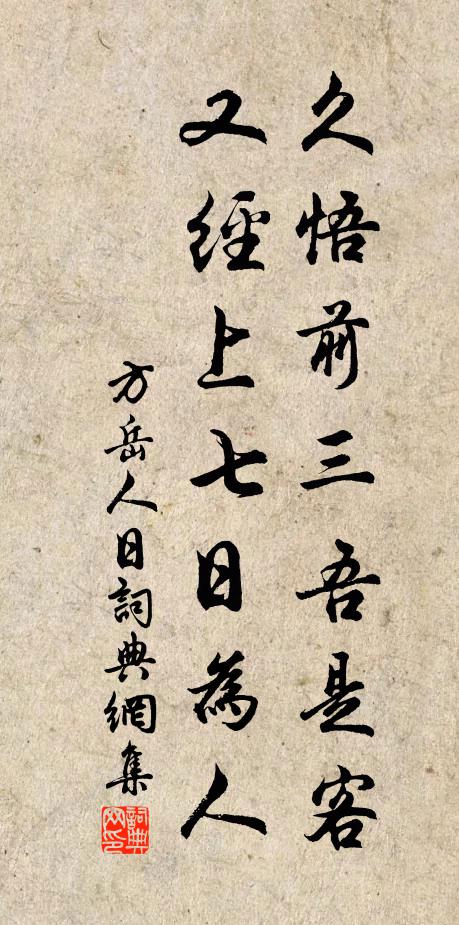 久悟前三吾是客
又經上七日為人
方岳人日詞典網集
詞典網印